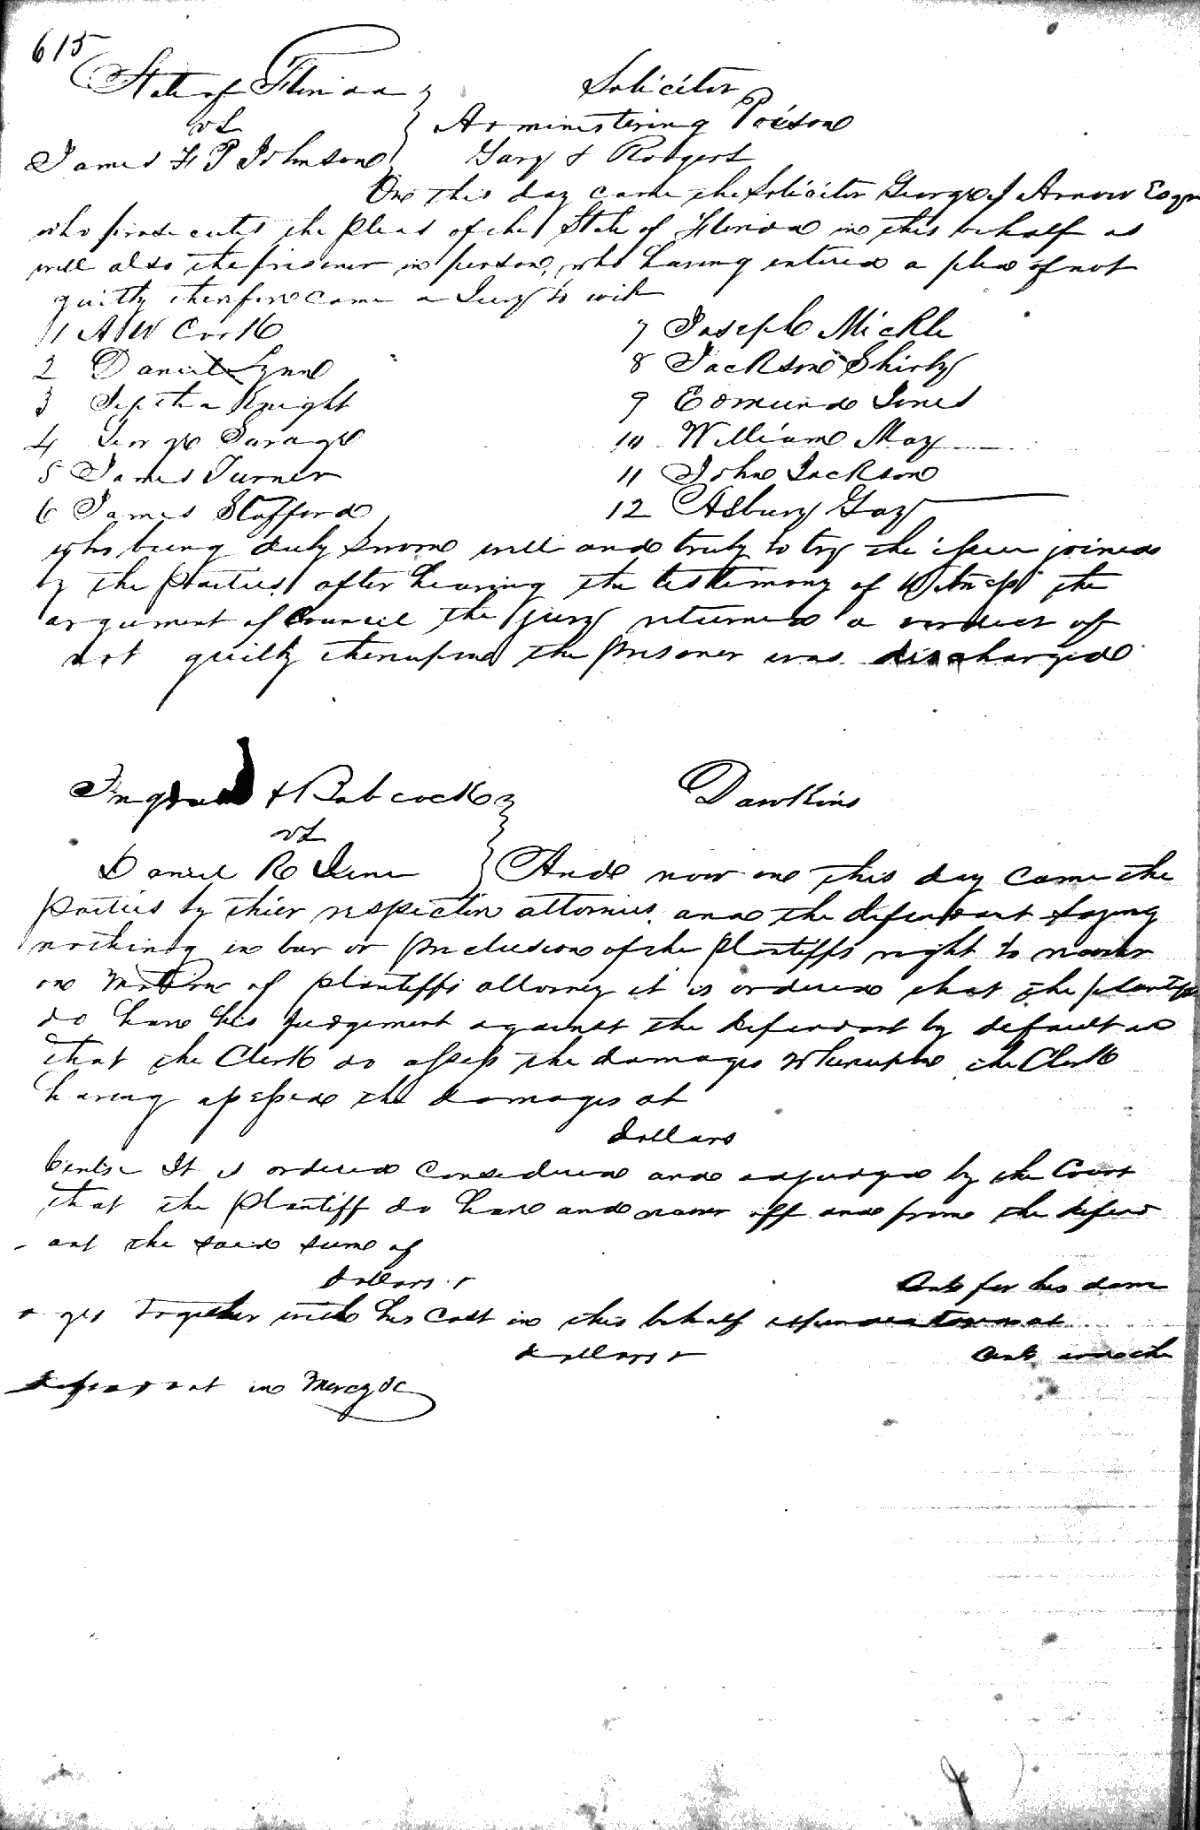 615
State of Florida } Solicitor
vs Administering Poison
James F P Johnson Gary & Rodgers
On this day came the Solicitor George J Arnow Esqr
who prosecutes the pleas of the State of Florida in this behalf as
well also the prisoner in person, who having entered a plea of not
guilty therefore came a Jury to wit
1 A W Cork 7 Joseph Mickle
2 Daniel Lynn 8 Jackson Shirly
3 Jeptha Knight 9 Edmund Jones
4 George Savage 10 William May
5 James Turner 11 John Jackson
6 James Stafford 12 Asbury Gay
who being duly sworn well and truly to try the issue joined
by the parties, after hearing the testimony of Witness the
argument of Council the jury returned a verdict of
not guilty thereupon the prisoner was discharged
& Babcock } Dawkins
vs
Daniel R And now on this day came the
parties by thier respective attornies and the defendant saying
nothing in bar or preclusion of the plantiffs right to recover
on Motion of plantiffs attorney it is ordered that the plantiff
do have his judgement against the defendant by default and
that the Clerk do assess the damages Whereupon the Clerk
having assessed the damages at
dollars
Cents It is ordered considered and adjudged by the Court
that the plantiff do have and recover off and from the defend
- ant the said sum of
dollars & Cents for his dam
ages together with his cost in this behalf expended taxed at
dollars & Cents and the
defendant in Mercy &c